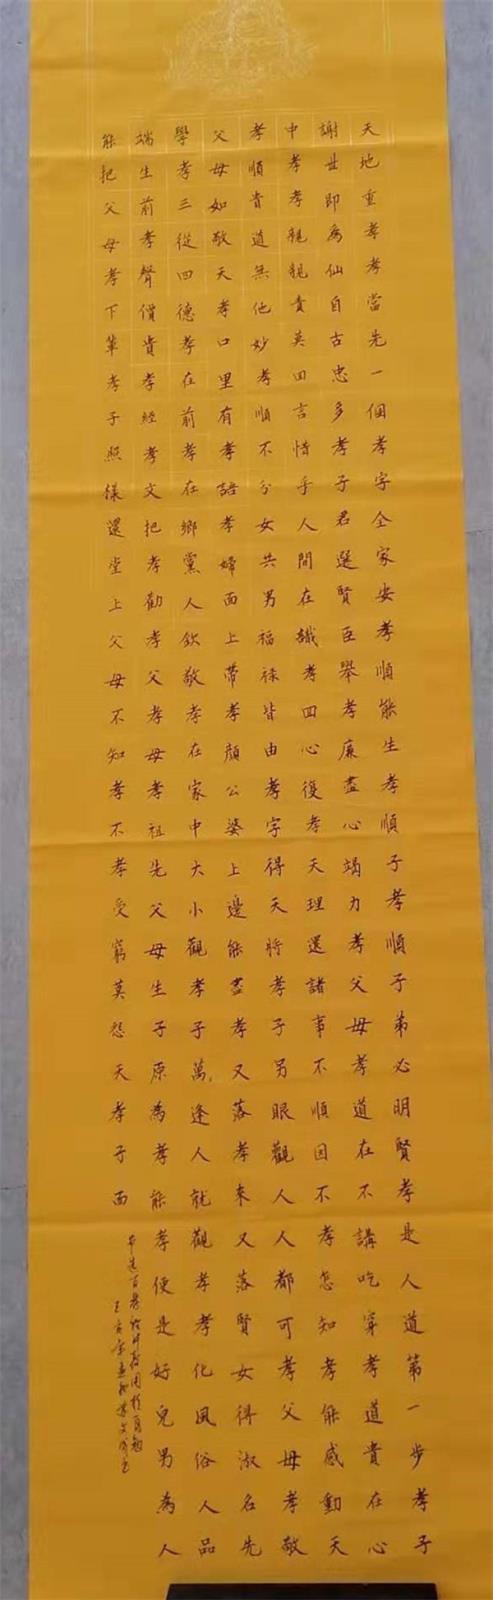 天地重孝孝當先一個孝字全家安孝順能生孝順子孝順子弟必明賢孝是人道第一步孝子
謝世即為仙自古忠多孝子君選賢臣舉孝廉盡心竭力孝父母孝道在不講吃穿孝道貴在心
中孝孝親親責莫回言惜乎人間在識孝回心復孝天理還諸事不順因不孝怎知孝能感動天
孝順貴道無他妙孝順不分女共男福祿皆由孝字得天將孝子另眼觀人人都可孝父母孝敬
父母如敬天孝口里有孝語孝婦面上帶孝顏公婆上邊能盡孝又落孝來又落賢女得淑名先
學孝三從四德孝在前孝在鄉黨人欽敬孝在家中大小觀孝子萬逢人就觀孝孝化風俗人品
端生前孝聲價貴孝經孝文把孝勸孝父孝母孝祖先父母生子原為孝能孝便是好兒男為人
能把父母孝下輩孝子照樣還堂上父母不知孝不孝受窮莫怨天孝子面